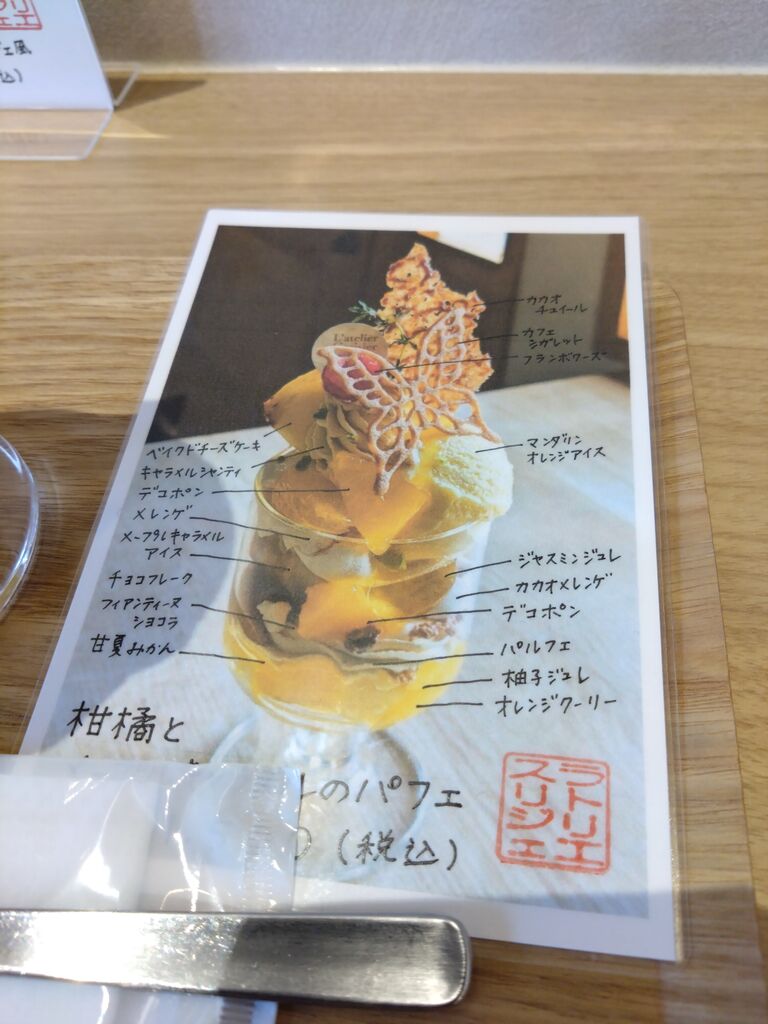 ェ風
込)
L'atelier
カカオ
チュイール
カフェ
シガレット
フランボワーズ
マンダリン
オレンジアイス
ベイクドチーズケーキ
キャラメルシャンティ
デコポン
メレンゲ
メープルキャラメル
アイス
チョコフレーク
フィアンティーヌ
ショコラ
甘夏みかん
ジャスミンジュレ
カカオメレンゲ
デコポン
パルフェ
柚子ジュレ
オレンジクーリー
柑橘と
トのパフェ
(税込)
ラトリエ
スリジェ